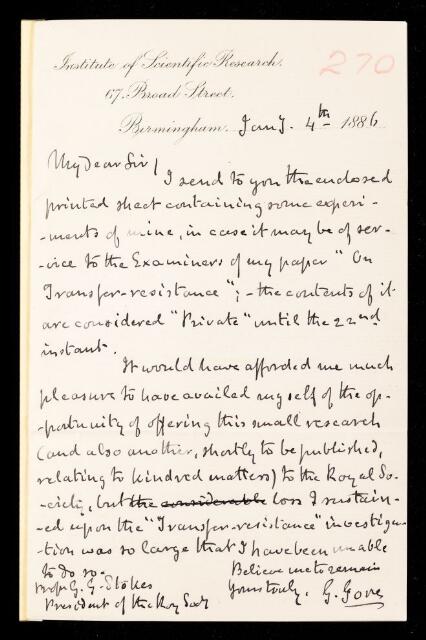 Institute of Scientific Research.
270
67. Broad Street.
Birmingham. Jany. 4th 1886
My dear Sir/
I send to you the enclosed
printed sheet containing some experi-
-ments of mine, in case it may be of ser-
-vice to the Examiners of my paper "On
Transfer-resistance"; - the contents of it
are considered "Private" until the 22nd
instant.
It would have afforded me much
pleasure to have availed myself of the op-
-portunity of offering this small research
(and also another, shortly to be published,
relating to kindred matters) to the Royal So-
-ciety, but the considerable loss I sustain-
-ed upon the "Transfer-resistance" investiga-
-tion was so large that I have been unable
to do so.
Believe me to remain
Profr G. G. Stokes
Yours truly, G. Gore
President of the Roy Socy